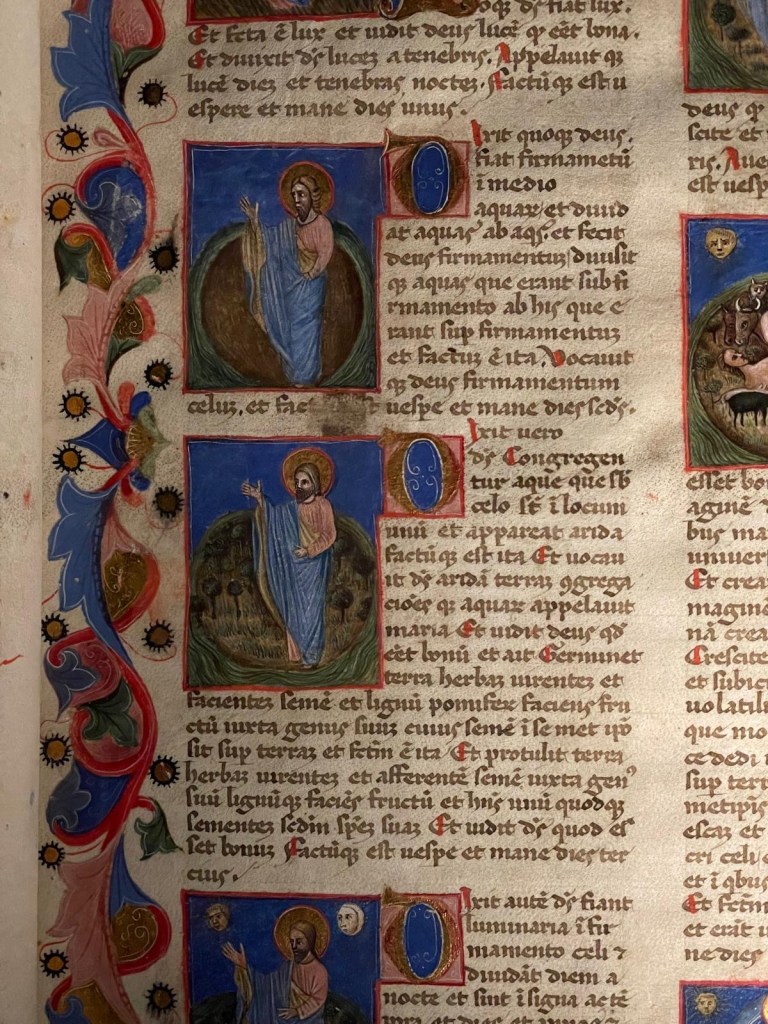 doq̃ d̃s fiat lux.
Et fcta ẽ lux et uidit deus lucẽ q̃ eẽt bona.
Et diuixit d̃s lucez a tenebris. Appelauit qȝ
lucẽ diez et tenebras noctez. Factũ qȝ est u
espere et mane dies unus.
Dixit quoqȝ deus.
fiat firmametũ
ĩ medio
aquaꝝ et diuid
at aquas ab aq̃s. et fecit
deus firmamentuȝ diuisit
qȝ aquas que erant sub fi
rmamento ab his que e
rant sup firmamentuȝ
et factuȝ ẽ ita. Vocauit
qȝ deus firmamentum
celuȝ, et fac uespe et mane dies sc̃ds.
Dixit uero
d̃s Congregen
tur aque que sb̃
celo st̃ ĩ locum
unũ et appareat arida
factũqȝ est ita Et uocau
it d̃s aridã terraȝ ꝯgrega
ciões qȝ aquaꝝ appelauit
maria Et uidit deus qd̃
eẽt bonũ et ait Germinet
terra herbaȝ uirenteȝ et
facienteȝ semẽ et lignũ pomifeꝝ faciens fru
ctũ iuxta genus suuȝ cuius semẽ ĩ se met ip̃o
sit sup terraȝ et fc̃tm ẽ ita Et protulit terra
herbaȝ uirenteȝ et afferentẽ semẽ iuxta genꝰ
suũ lignũqȝ faciẽs fructũ et hñs unũ quodqȝ
sementeȝ sedm̃ sp̃eȝ suaȝ Et uidit d̃s quod es
set bonuȝ Factũqȝ est uespe et mane dies ter
cius.
Dixit autẽ d̃s fiant
luminaria ĩ fir
mamento celi ⁊
diuidãt diem a
nocte et sint ĩ signa ac tẽ
deus q̃
scite et
ris. Aue
est uesp
esset bo
aginẽ
bus ma
uniuer
Et crea
magine
nã crea
Crescite
et subici
uolatil
que mo
ce dedi
sup terr
metip̃is
escaȝ et
cri celi e
et ĩ qbus
Et fc̃tm
et erãt u
ne dies